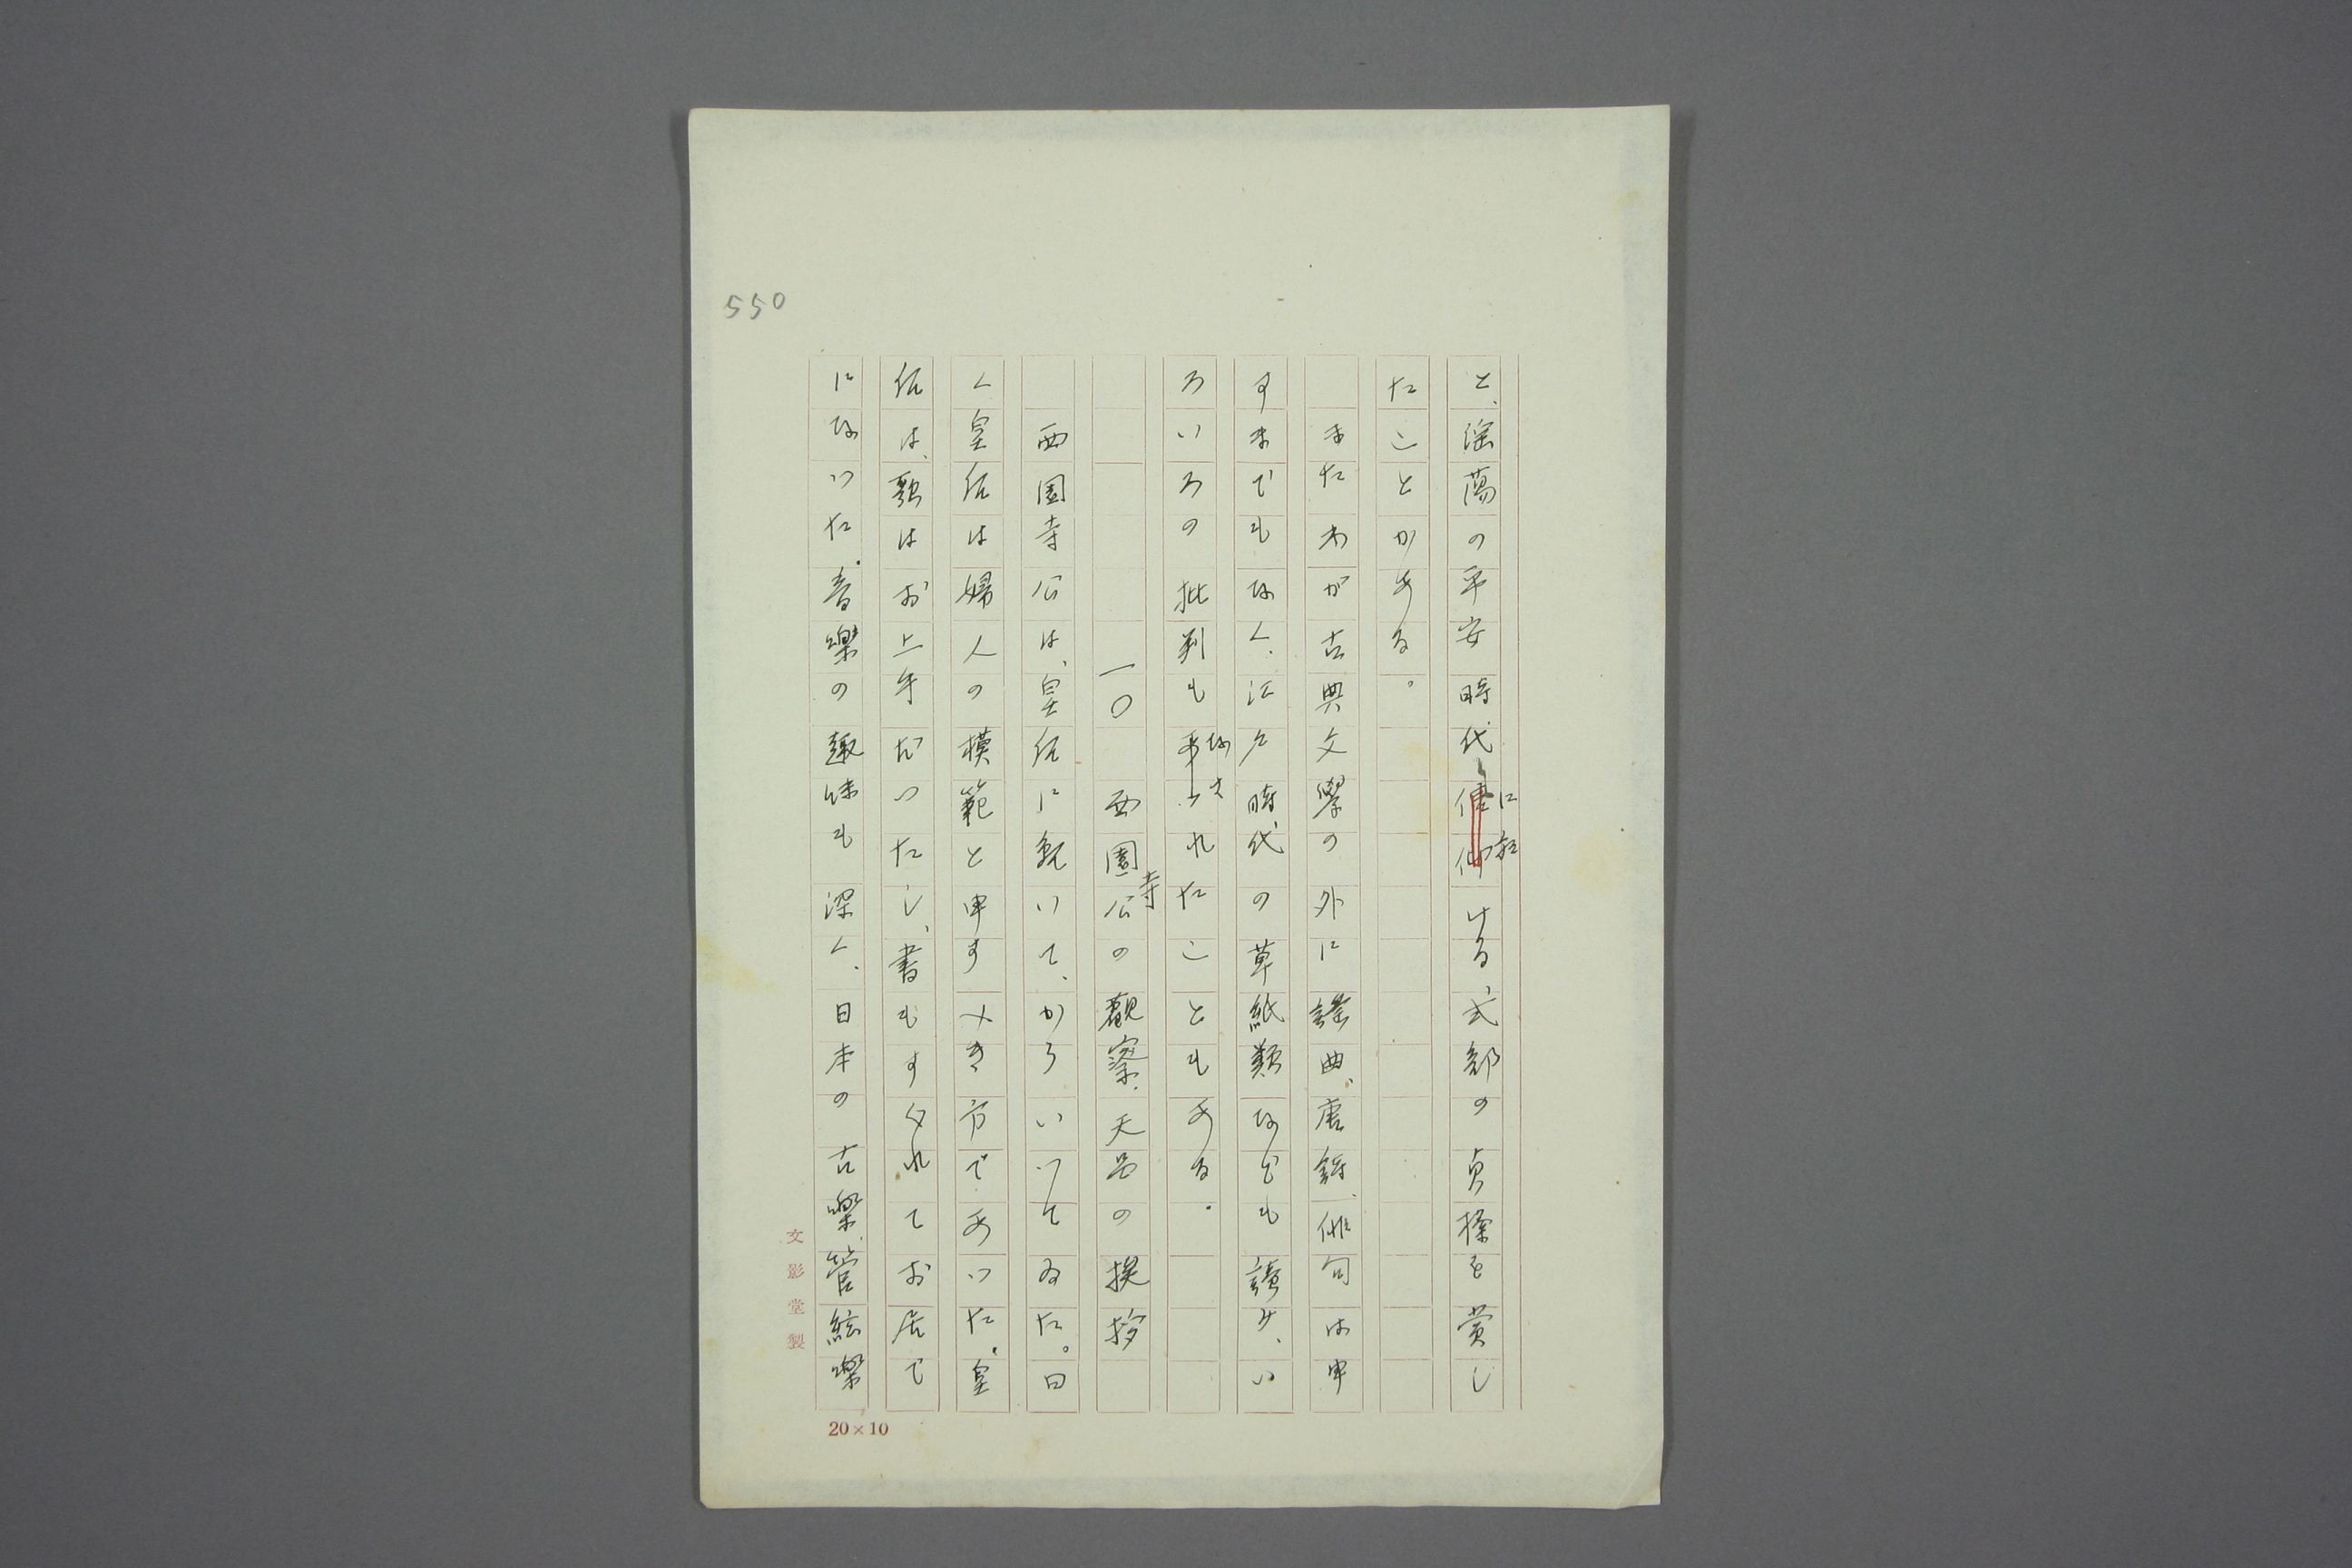 550
と、淫蕩の平安時代に於ける、式部の貞操を賞し
たことがある。
またわが古典文學の外に謠曲、唐詩、俳句は申
すまでもなく、江戸時代の草紙類なども讀み、い
ろいろの批判もなされたこともある。
一〇　西園寺公の觀察、天品の挨拶
西園寺公は、皇后に就いて、かういつてゐた。曰
く皇后は婦人の模範と申すべき方であつた。皇
后は、歌はお上手だつたし、書もすぐれてお居で
になつた。音樂の趣味も深く、日本の古樂、管絃樂
文影堂製
20×10